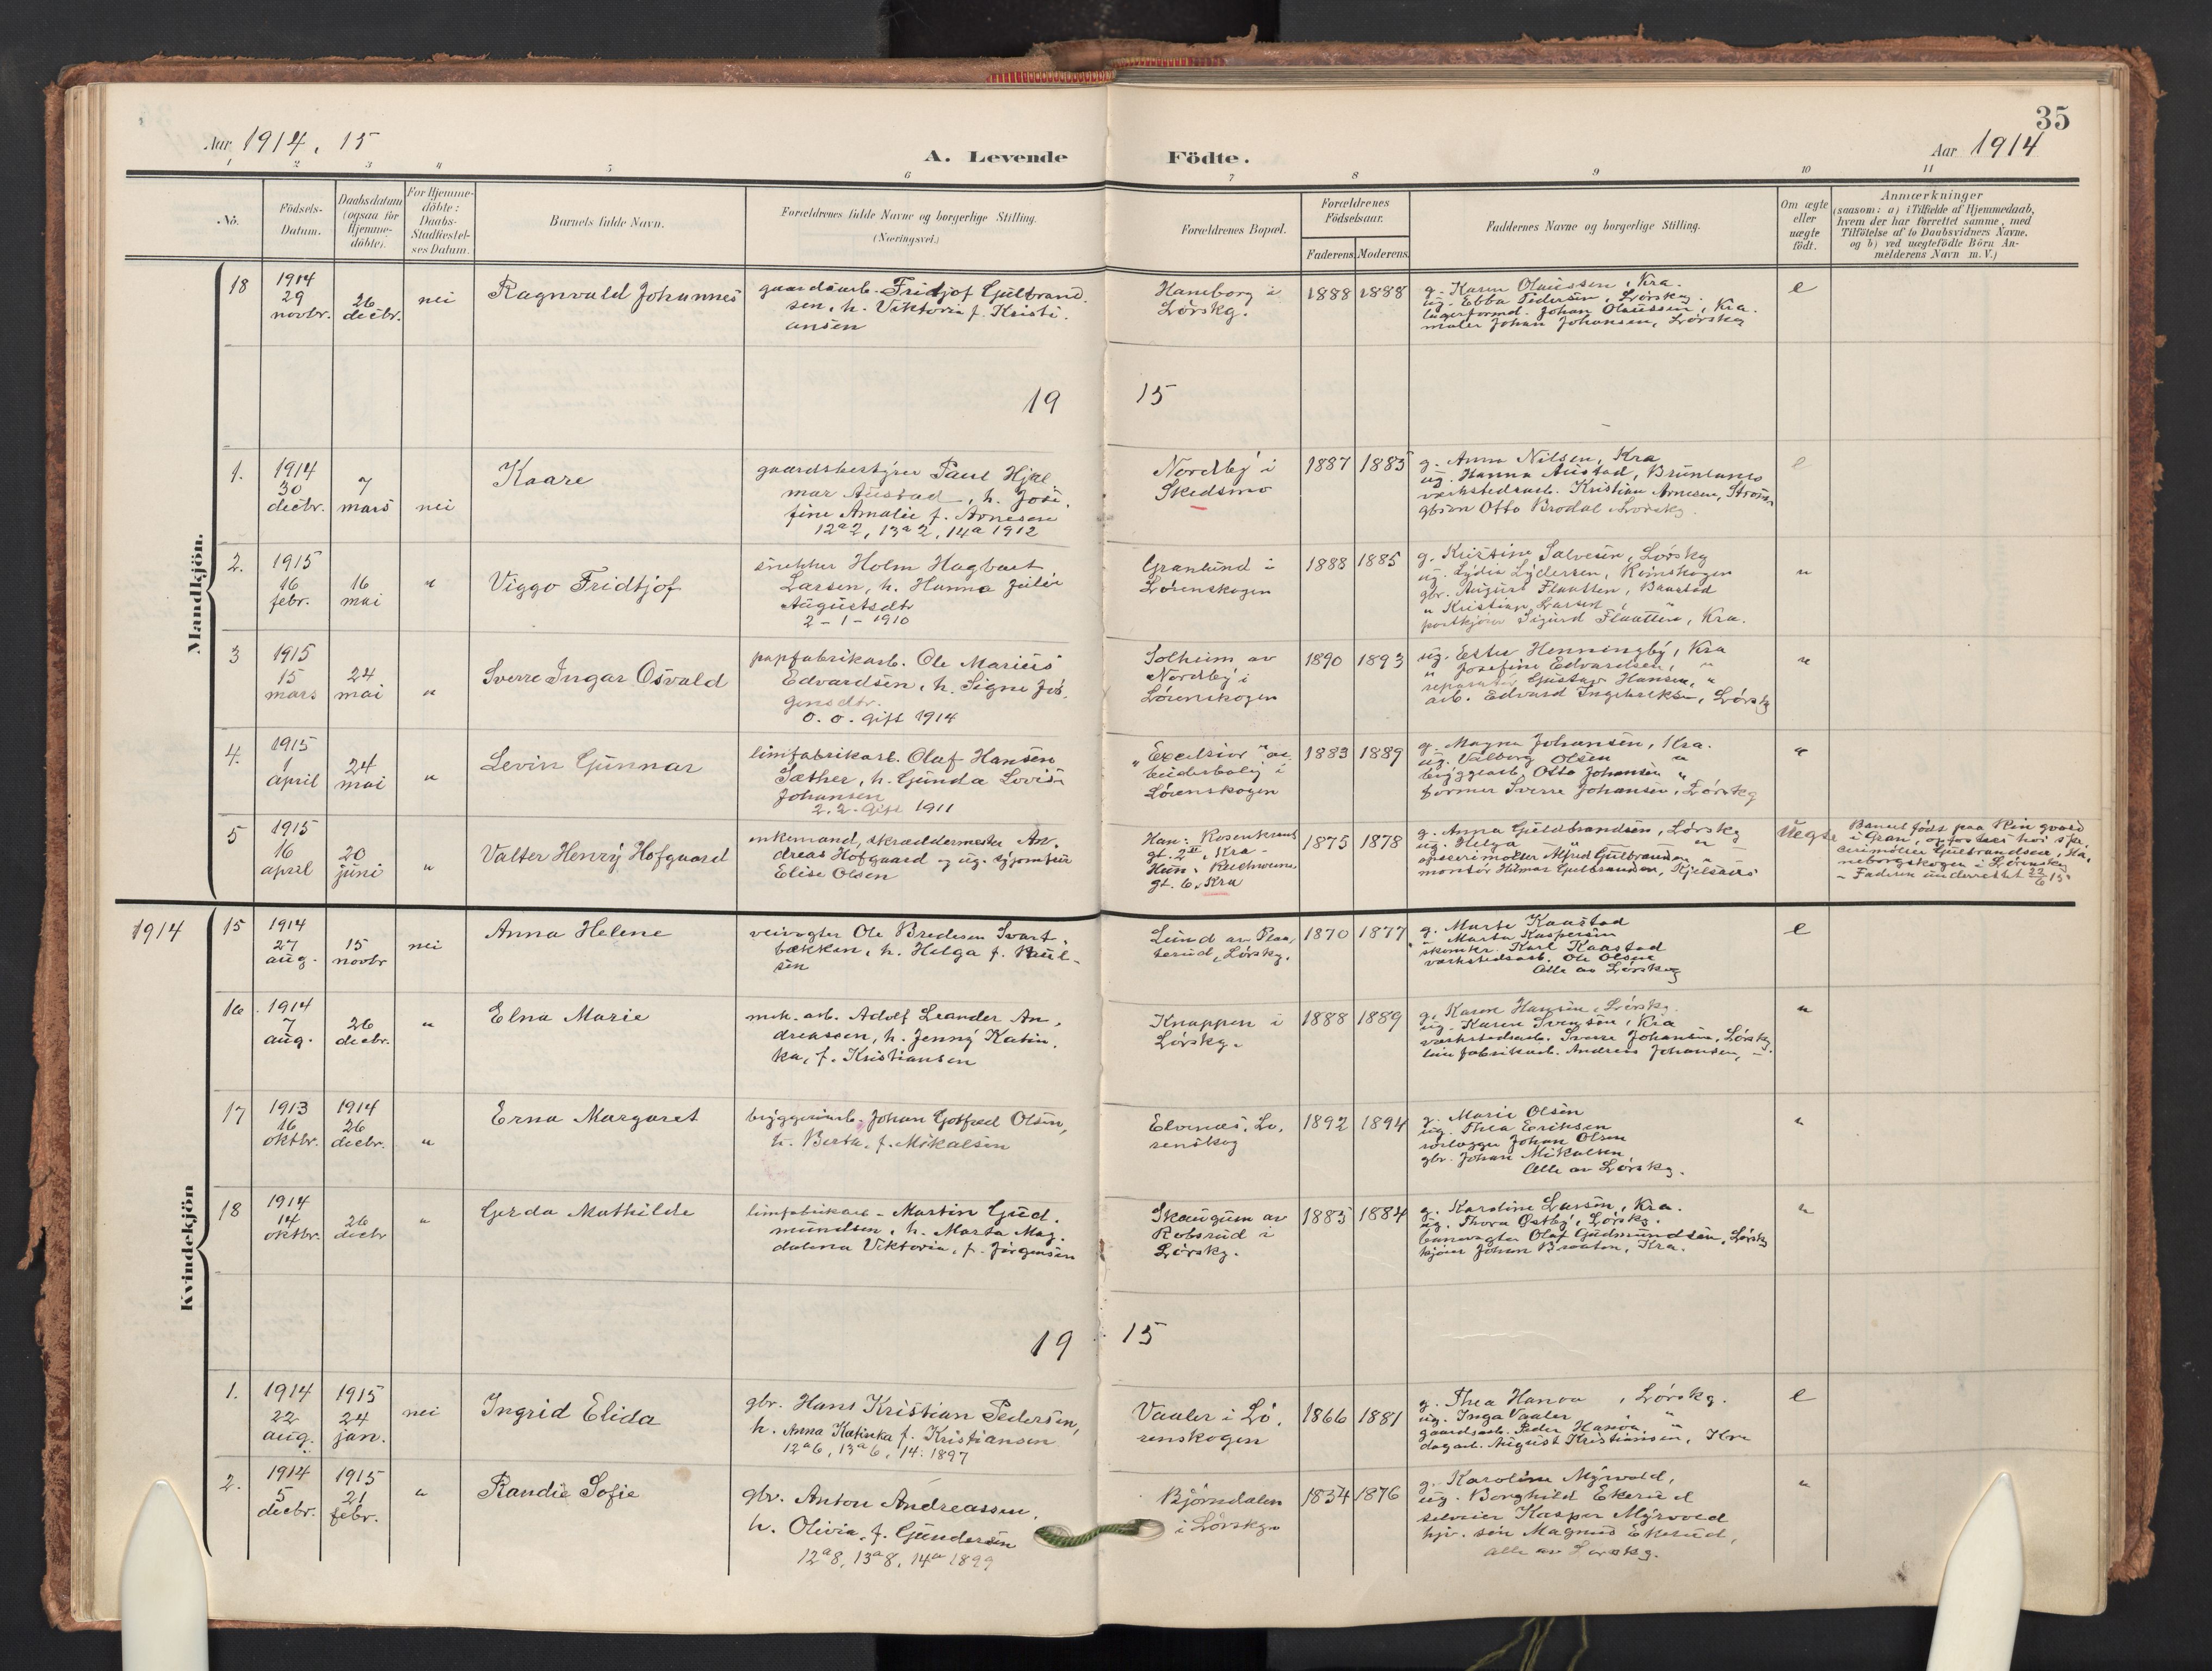 35
Aar 1914. 15
A. Levende
Födte.
Aar 1914
1 2 3 4 5 6 7 8 9 10 11
No.
Födsels-
Datum.
Daabsdatum
(ogsaa for
Hjemme-
döbte).
For Hjemme-
döbte:
Daabs-
Stadfæstel-
ses Datum.
Barnets fulde Navn.
Forældrenes fulde Navne og borgerlige Stilling.
(Næringsvei.)
Forældrenes Bopæl.
Forældrenes
Födselsaar.
Faderens. Moderens.
Faddernes Navne og borgerlige Stilling.
Om ægte
eller
uægte
födt.
Anmærkninger
(saasom: a) i Tilfælde af Hjemmedaab,
hvem der har forrettet samme, med
Tilföielse af to Daabsvidners Navne,
og b) ved uægtefödte Börn An-
melderens Navn m. V.)
Mandkjön.
18
1914
29
novbr.
26
decbr.
nei
Ragnvald Johannes
gaardsarb. Fridtjof Gulbrand-
sen, h. Viktoria f. Kristi-
ansen
Haneborg i
Lørskg.
1888 1888
g. Karen Olaussen, Kra.
ug. Ebba Pedersen, Lørskg.
lagerformd. Johan Olaussen, Kra.
maler Johan Johansen, Lørskog
e
19 15
1.
1914
30
decbr.
7
mars
nei
Kaare
gaardsbestyrer Paul Hjal-
mar Austad, h. Jose-
fine Amalie f. Arnesen
12a 2, 13a 2, 14a 1912
Nordby i
Skedsmo
1887 1885
g. Anna Nilsen, Kra
ug. Hanna Austad, Brunlanes
værkstedsarb. Kristian Arnesen, Strøm
gbsøn Otto Brodal Lørskg.
e
2.
1915
16
febr.
16
mai
"
Viggo Fridtjof
snekker Holm Hagbart
Larsen, h. Hanna Julie
Augustsdtr
2 - 1 - 1910
Granlund i
Lørenskogen
1888 1885
g. Kristine Salvesen, Lørskg
ug. Lydia Lydersen, Rømskogen
gbr. August Flaatten, Baastad
" Kristian Larsen, "
postkjører Sigurd Flaatten, Kra.
"
3
1915
15
mars
24
mai
"
Sverre Ingar Osvald
papfabrikarb. Ole Marius
Edvardsen, h. Signe Jør-
gensdtr.
0. 0. gift 1914
Solheim av
Nordby i
Lørenskogen
1890 1893
ug. Ester Henningby, Kra
" Josefine Edvardsen, "
reparatør Gustav Hansen, "
arb. Edvard Ingebretsen, Lørskg
"
4.
1915
1
april
24
mai
"
Levin Gunnar
limfabrikarb. Olaf Hansen
Sæther, h. Gunda Lovise
Johansen
2. 2. Gift 1911
"Excelsior" ar-
beiderbolig i
Lørenskogen
1883 1889
g. Magna Johansen, Kra.
ug. Valborg Olsen "
bryggearb. Otto Johansen "
former Sverre Johansen, Lørskg
"
5
1915
16
april
20
juni
"
Valter Henry Hofgaard
enkemand, skræddermester An-
dreas Hofgaard og ug. syjomfru
Elise Olsen
Han: Rosenkrants
gt. 2 II, Kra -
Hun:
gt. 6, Kra
1875 1878
g. Anna Guldbrandsen, Lørskg
ug. Helga " "
Alfred Gulbrandsen "
montør Hilmar Gulbrandsen, Kjelsaas
uegte
Barnet født paa Rin gaard
i Gran, opfostres hos spi-
cerimøller Gulbrandsen, Ha-
neborgskogen i Lørenskog
- Faderen underrettet 22/6 15.
1914
Kvindekjön
15
1914
27
aug.
15
novbr
nei
Anna Helene
veivogter Ole Bredesen Svart-
bækken, h. Helga f. Paul-
sen
Lund av Plaa-
terud, Lørskg.
1870 1877
g. Marte Kaastad
" Marta Kaspersen
skomkr. Karl Kaastad
værkstedsarb. Ole Olsen
Alle av Lørskog
e
16
1914
7
aug.
26
decbr.
"
Elna Marie
mek. arb. Adolf Leander An-
dreassen, h. Jenny Katin-
ka, f. Kristiansen
Knappen i
Lørskg.
1888 1889
g. Karen Hansen, Lørskg.
ug. Karen Svensen, Kra
værkstedsarb. Sverre Johansen, Lørskg.
limfabrikarb. Andreas Johansen, -
"
17
1913
16
oktbr.
1914
26
decbr.
"
Erna Margaret
bryggeriarb. Johan Gotfred Olsen,
h. Berta, f. Mikalsen
Elvenæs, Lø-
renskog
1892 1894
g. Marie Olsen
ug. Thea Eriksen
rørlægger Johan Olsen
gbr. Johan Mikalsen
Alle av Lørskg.
"
18
1914
14
oktbr.
26
decbr
"
Gerda Mathilde
limfabrikarb - Martin Gud-
mundsen, h. Marta Mag-
dalena Viktoria, f. Jørgensen
Skaugum av
Robsrud i
Lørskg.
1885 1884
g. Karoline Larsen, Kra.
ug. Thora Østby, Lørskg.
banevogter Olaf Gudmundsen, Lørskg
kjører Johan Braaten, Kra.
"
19 15
1.
1914
22
aug.
1915
24
jan.
nei
Ingrid Elida
gbr. Hans Kristian Pedersen,
h. Anna Katinka f. Kristiansen
12a 6, 13a 6, 14: 1897
Vaaler i Lø-
renskogen
1866 1881
g. Thea Hanøa, Lørskg.
ug. Inga Vaaler "
gaardsarb. Peder Hanøa "
dagarb. August Kristiansen, Kra
e
2.
1914
5
decbr.
1915
21
febr.
"
Randie Sofie
gbr. Anton Andreassen,
h. Olivia, f. Gundersen
12a 8, 13a 8, 14a 1899
Bjørndalen
i Lørskg.
1834 1876
g. Karoline Myrvold,
ug. Borghild Ekerud
selveier Kasper Myrvold
hjv. søn Magnus Ekerud,
alle av Lørskg.
"